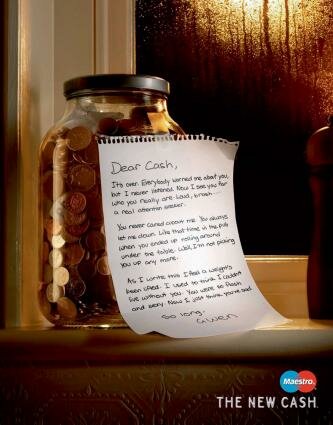 Dear Cash,
It's over. Everybody warned me about you,
but I never listened. Now I see you for
who you really are - loud, brash...
a real attention seeker.
You never cared about me. You always
let me down. Like that time in the pub
when you ended up rolling around
under the table. Well, I'm not picking
you up any more.
As I write this I feel a weight's
been lifted. I used to think I couldn't
live without you. You were so flash
and sexy. Now I just think you're sad.
So long.
Gwen
Maestro
THE NEW CASH